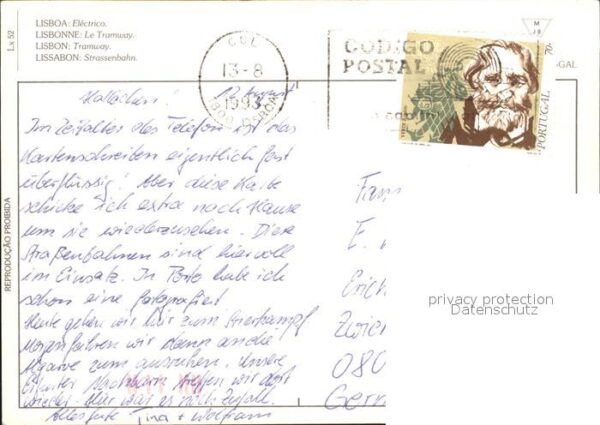 LISBOA: Eléctrico.
LISBONNE: Le Tramway.
LISBON: Tramway.
LISSABON: Strassenbahn.
Lx 52
REPRODUÇÃO PROIBIDA
13-8
1993
CÓDIGO
POSTAL
PORTUGAL
GAL
Hallöchen! 12. August
Im Zeitalter des Telefons ist das
Kartenschreiben eigentlich fast
überflüssig! Aber diese Karte
schicke ich extra nach Hause
um sie wiederzusehen. Diese
Straßenbahnen sind hier voll
im Einsatz. In Porto habe ich
schon eine fotografiert
Heute gehen wir hier zum Stierkampf
Morgen fahren wir dann an die
Algarve zum ausruhen. Unsere
Erfurter Nachbarn treffen wir dort
wieder. Hier war es noch Zufall.
Alles Gute Tina + Wolfram
Fam
E.
Erich
Zwic
080
Germ
privacy protection
Datenschutz